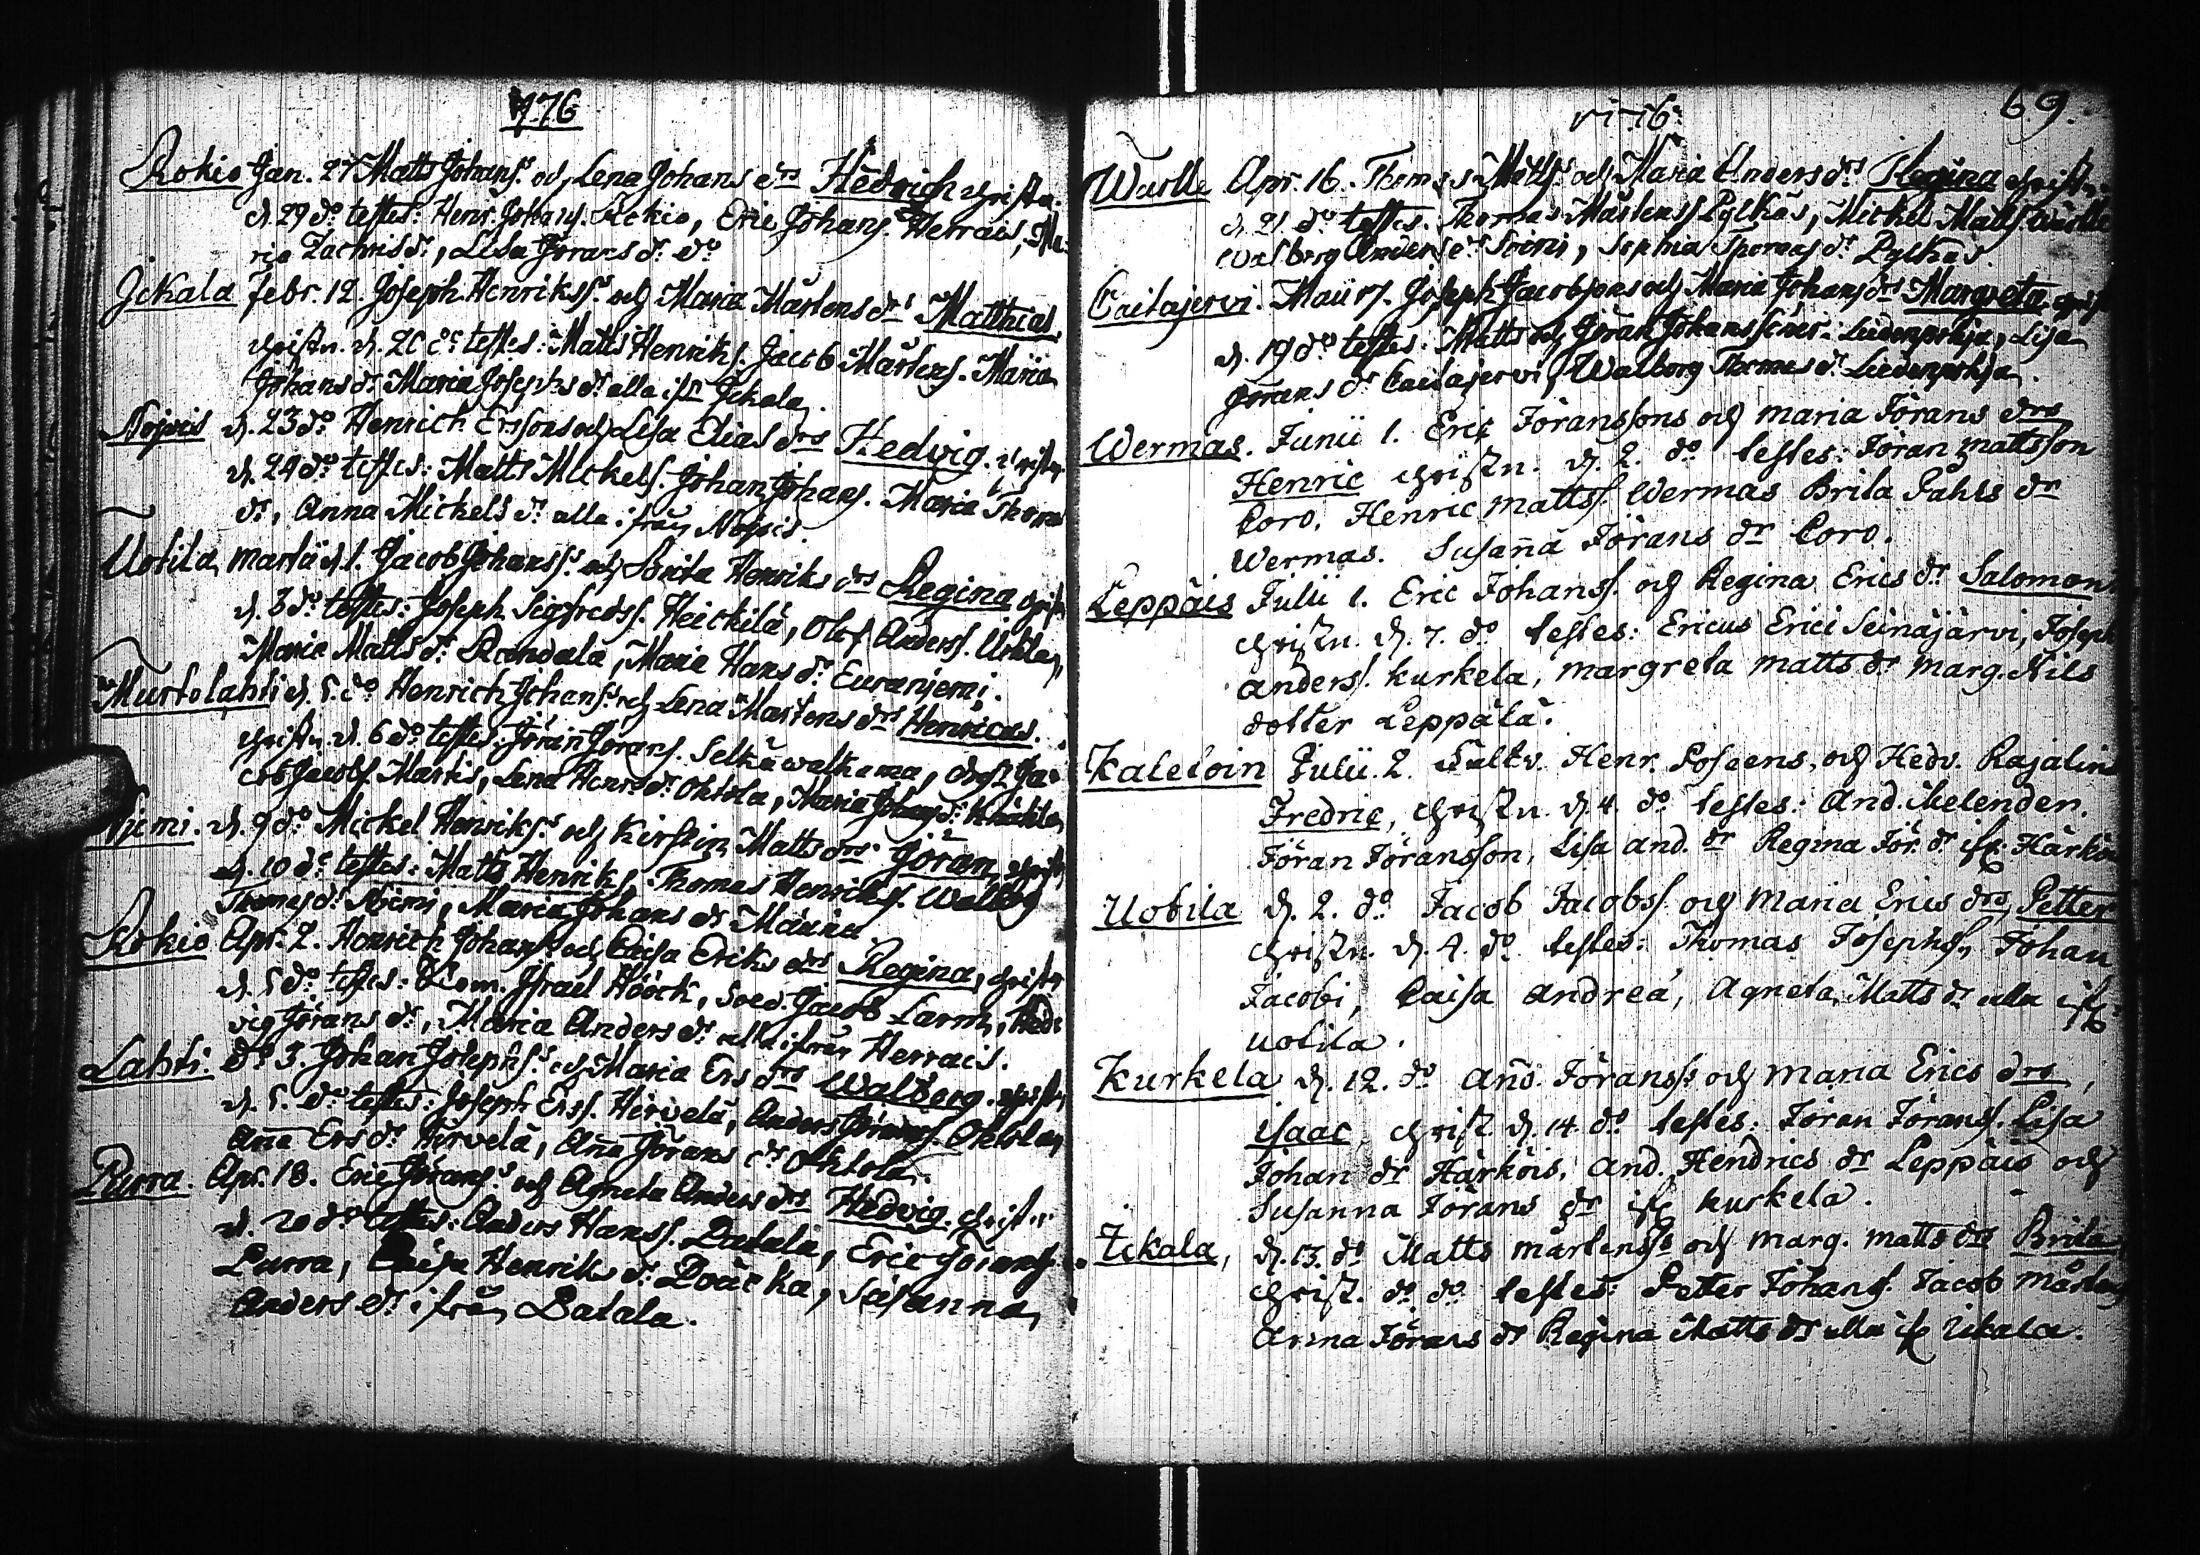 1776
Rokio Jan. 27 Matts Johanss. och Lena Johans drs Hedvich christn.
d. 29 do testes: Henr. Johanss. Rokio, Eric Johanss. Herrais, Ma-
ria Zachrisdr., Lisa Jörans dr. do
Ickala Febr. 12. Joseph Henrikss. och Maria Mårtens drs Matthias
christn. d. 20 do testes: Matts Henrikss. Jacob Mårtens. Maria
Johans dr. Maria Josephs dr. alla ifrn Ickala.
Nopois d. 23 do Henrich Erssons och Lisa Elias drs Hedvig. christn.
d. 24 do testes: Matts Mickels. Johan Johans. Maria Thom
dr., Anna Mickels dr. alla ifrån Nopois.
Uotila Martii d. 1. Jacob Johanss. och Brita Henriks drs Regina christ
d. 3 do testes: Joseph Sigfredss. Heickilä, Olof Anderss. Uotila,
Maria Matts dr. Randala, Maria Hans dr. Euranjemi.
Murtolahti d. 5. do Henrich Johanss. och Lena Mårtens drs Henricus.
christn. d. 6 do testes: Jöran Jörans. Selkäwalkama, och Ja-
cob Jacobs. Martis, Lena Henr. dr. Ohtola, Maria Johans dr.
Niemi. d. 9 do Mickel Henrikss. och Kirstin Matts drs Jöran, christ
d. 10 do testes: Matts Henriks. Thomas Henrikss. Walborg
Thomas dr. Niemi, Maria Johans dr Mänina
Rokio Apr. 2. Henrich Johanss. och Caisa Eriks drs Regina, christn
d. 5 do testes: Kom. Israel Höök, Jacob Larm, Hed-
vig Jörans dr., Maria Anders dr. alla ifrån Herrais.
Lahti. do 3. Johan Josephs. och Maria Ers drs Walberg. christn
d. 5. do testes: Joseph Erss. Hirvelä, Anders Ohtola,
Aña Ers dr. Hirvelä, Aña Jörans dr. Ohtola.
Purra. Apr. 18. Eric Jöranss. och Agneta Anders drs Hedvig. christn.
d. 20 do testes: Anders Hanss. Datala, Eric Jörans
Purra, Caisa Henriks dr. Susanna
Anders dr. ifrån Datala.
1776. 69.
Wurlle Apr. 16. Thomas Matts. och Maria Anders drs Regina christn.
d. 21 do testes. Thomas Mårtenss Pylkäs, Mickel Matts. Wurlle
Walborg Anders dr. Soini, Sophia Thomas dr. Pylkäs.
Caitajervi. Maii 17. Joseph Jacobssons och Maria Johans drs Margreta christ
d. 19 do testes: Matts och Jöran Johanssöner. Liedenpohja, Lisa
Jörans dr Caitajervi, Walborg Thomas dr. Liedenpohja.
Wermas. Junii 1. Eric Jöranssons och Maria Jörans drs
Henric christn. d. 2. do testes: Jöran mattsson
Coro, Henric mattss. Wermas Brita Påhls dr
Wermas. Susaña Jörans dr Coro.
Leppäis Julii 1. Eric Johanss. och Regina Erics dr Salomon
christn. d. 7. do testes: Ericus Erici Seinäjärvi, Joseph
anderss. kurkela, margreta matts dr marg. Nils
dotter Leppälä.
Kaleloin Julii 2. Henr. Poseens, och Hedv. Rajalins
Fredric, christn. d. 4. do testes: And. Melenden.
Jöran Jöransson, Lisa and. dr Regina Jör. dr ifr. Härköi
Uotila d. 2. do Jacob Jacobss. och Maria Erics drs Petter
christn. d. 4. do testes: Thomas Josephss. Johan
Jacobi, Caisa Andreä, Agneta Matts dr alla ifr.
uotila.
Kurkela d. 12. do Añd. Jöranss. och Maria Erics drs,
isaac, christ. d. 14 do testes: Jöran Jöranss. Lisa
Johan dr Härköis, and. Hendrics dr Leppäis och
Susanna Jörans dr ifr kurkela.
Ickala, d. 13. do Matts mårtenss. och marg. matts drs Brita
christ. do do testes: Petter Johanss. Jacob mårtens
anna Jörans dr Regina Matts dr alla ifr Ickala.